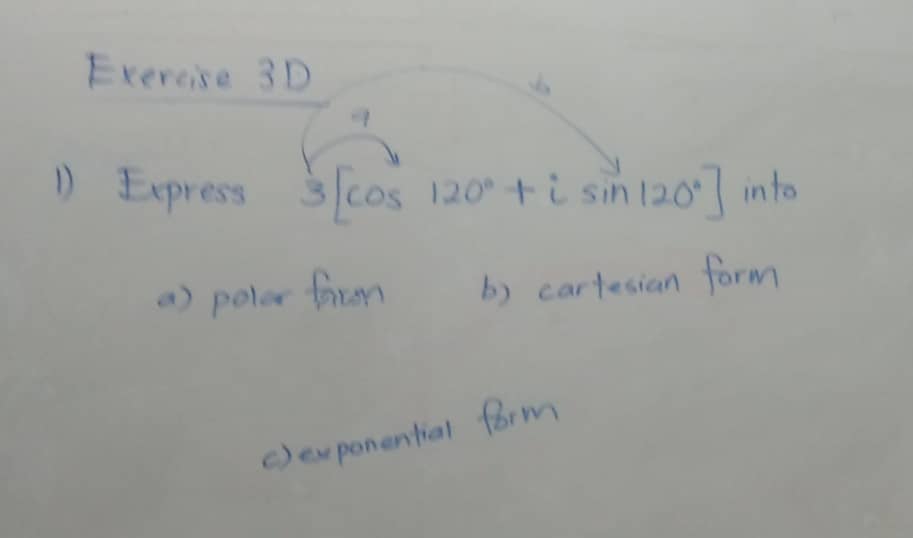 Exercise 3D
a b
1) Express 3[cos 120° + i sin 120°] into
a) polar form b) cartesian form
c) exponential form